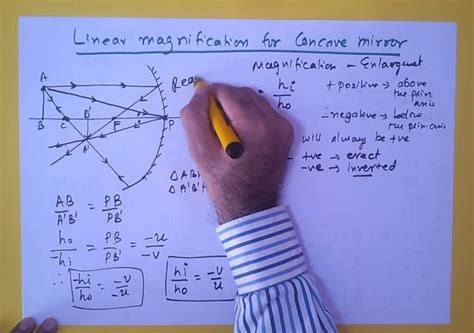 Linear magnification for Concave mirror
Magnification - Enlargment
hi
ho
+ positive → above
the prin.
axis
- negative → below
the prin. axis
will always be +ve
+ve → erect
-ve → inverted
Rea
A
B C B' F P
A'
Δ AB
Δ A'B'
AB / A'B' = PB / PB'
ho / -hi = PB / PB' = -u / -v
∴ -hi / ho = -v / -u
hi / ho = -v / u